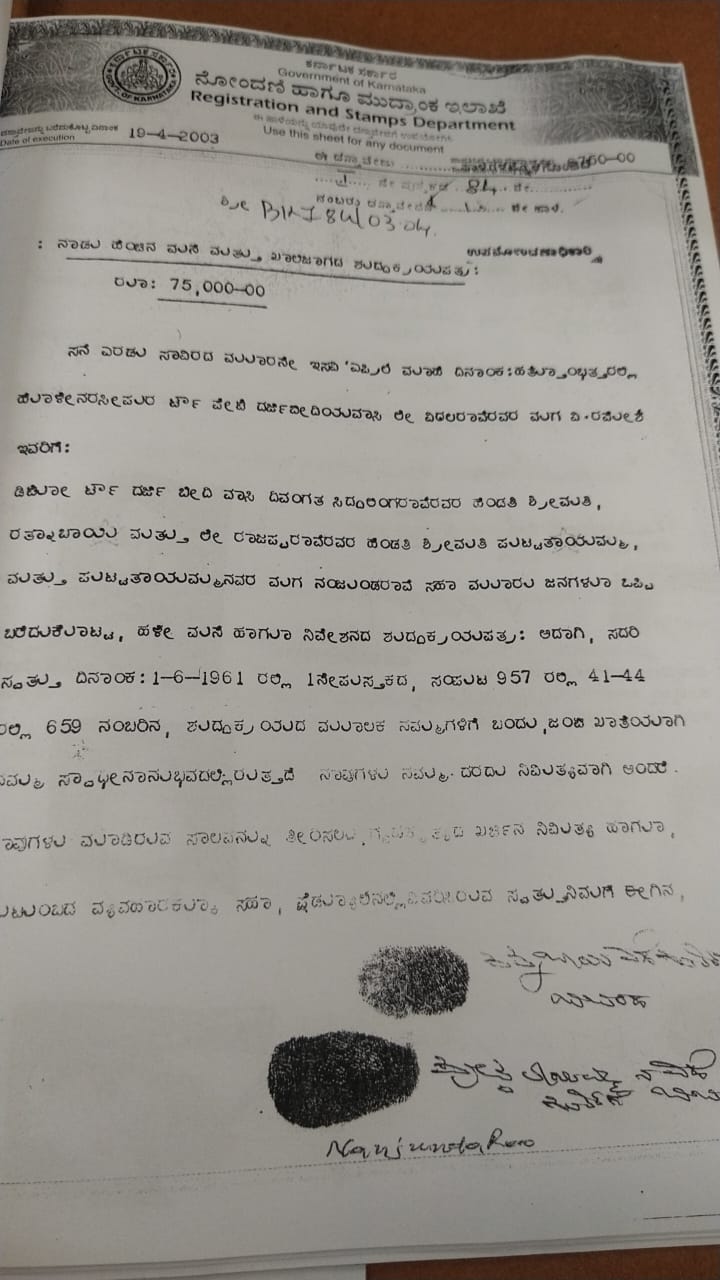 ಕರ್ನಾಟಕ ಸರ್ಕಾರ
Government of Karnataka
ನೋಂದಣಿ ಹಾಗೂ ಮುದ್ರಾಂಕ ಇಲಾಖೆ
Registration and Stamps Department
Use this sheet for any document
Date of execution 19-4-2003
ಈ ದಸ್ತಾವೇಜು
84 ನೇ
: ನಾಡು ಹೆಂಚಿನ ಮನೆ ಮತ್ತು ಖಾಲಿಜಾಗದ ಶುದ್ಧಕ್ರಯಪತ್ರ:
ರೂ: 75,000-00
ಸನೆ ಎರಡು ಸಾವಿರದ ಮೂರನೇ ಇಸವಿ ಏಪ್ರಿಲ್ ಮಾಹೆ ದಿನಾಂಕ:ಹತ್ತೊಂಭತ್ತರಲ್ಲಿ
ಹೊಳೇನರಸೀಪುರ ಟೌನ್ ಪೇಟೆ ದರ್ಜಿಬೀದಿಯವಾಸಿ ಲೇ ವಿಠಲರಾವ್‌ರವರ ಮಗ ವಿ.ರಮೇಶ್
ಇವರಿಗೆ:
ಟೌನ್ ದರ್ಜಿ ಬೀದಿ ವಾಸಿ ದಿವಂಗತ ಸಿದ್ದಲಿಂಗರಾವ್‌ರವರ ಹೆಂಡತಿ ಶ್ರೀಮತಿ,
ರತ್ನಾಬಾಯಿ ಮತ್ತು ಲೇ ರಾಜಪ್ಪರಾವ್‌ರವರ ಹೆಂಡತಿ ಶ್ರೀಮತಿ ಪುಟ್ಟತಾಯಮ್ಮ,
ಮತ್ತು ಪುಟ್ಟತಾಯಮ್ಮನವರ ಮಗ ನಂಜುಂಡರಾವ್ ಸಹಾ ಮೂರು ಜನಗಳೂ ಒಪ್ಪಿ
ಬರೆದುಕೊಟ್ಟ, ಹಳೇ ಮನೆ ಹಾಗೂ ನಿವೇಶನದ ಶುದ್ಧಕ್ರಯಪತ್ರ: ಅದಾಗಿ, ಸದರಿ
ಸ್ವತ್ತು ದಿನಾಂಕ:1-6-1961 ರಲ್ಲಿ 1ನೇಪುಸ್ತಕದ, ಸಂಪುಟ 957 ರಲ್ಲಿ 41-44
ರಲ್ಲಿ 659 ನಂಬರಿನ, ಶುದ್ಧಕ್ರಯದ ಮೂಲಕ ನಮ್ಮಗಳಿಗೆ ಬಂದು,ಜಂಟಿ ಖಾತೆಯಾಗಿ
ನಮ್ಮ ಸ್ವಾಧೀನಾನುಭವದಲ್ಲಿರುತ್ತದೆ ನಾವುಗಳು ನಮ್ಮ ದರದು ನಿಮಿತ್ಯವಾಗಿ ಅಂದರೆ.
ನಾವುಗಳು ಮಾಡಿರುವ ಸಾಲವನ್ನು ತೀರಿಸಲು, ಗೃಹಕೃತ್ಯದ ಖರ್ಚಿನ ನಿಮಿತ್ಯ ಹಾಗೂ,
ಕುಟುಂಬದ ವ್ಯವಹಾರಕ್ಕಾಗಿ ಸಹಾ, ಷೆಡ್ಯೂಲಿನಲ್ಲಿವಿವರಿಸಿರುವ ಸ್ವತ್ತುನಿಮಗೆ ಈಗಿನ,
Nanjunda Rao